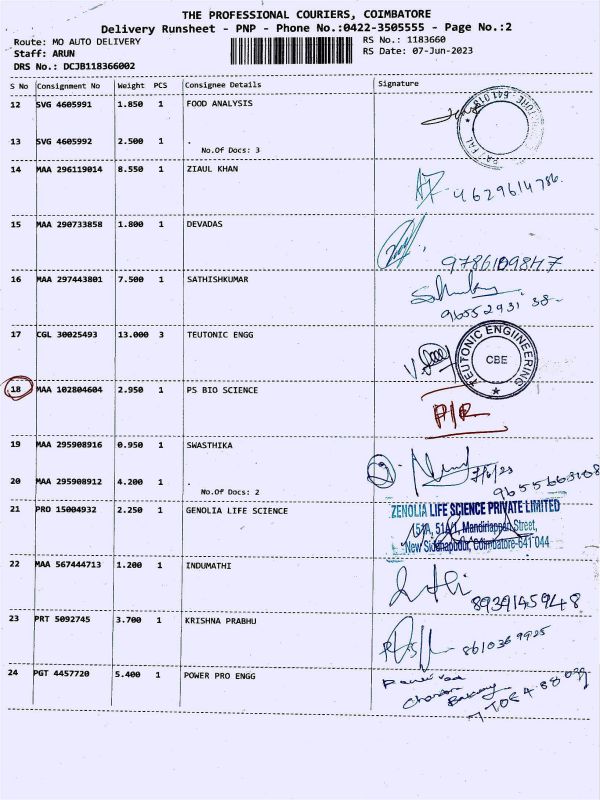 THE PROFESSIONAL COURIERS, COIMBATORE
Delivery Runsheet - PNP - Phone No.:0422-3505555 - Page No.:2
Route: MO AUTO DELIVERY RS No.: 1183660
Staff: ARUN RS Date: 07-Jun-2023
DRS No.: DCJB118366002
S No Consignment No Weight PCS Consignee Details Signature
12 SVG 4605991 1.850 1 FOOD ANALYSIS
641018
13 SVG 4605992 2.500 1 .
No.Of Docs: 3
14 MAA 296119014 8.550 1 ZIAUL KHAN
9629614786.
15 MAA 290733858 1.800 1 DEVADAS
9786109847
16 MAA 297443801 7.500 1 SATHISHKUMAR
9655293138-
17 CGL 30025493 13.000 3 TEUTONIC ENGG
TEUTONIC ENGIINEERING
CBE
18 MAA 102804604 2.950 1 PS BIO SCIENCE
A/R
19 MAA 295908916 0.950 1 SWASTHIKA
7/6/23
20 MAA 295908912 4.200 1 .
No.Of Docs: 2
21 PRO 15004932 2.250 1 GENOLIA LIFE SCIENCE
ZENOLIA LIFE SCIENCE PRIVATE LIMITED
Mandiriappan Street,
New Sidhapudur, Coimbatore-641 044
22 MAA 567444713 1.200 1 INDUMATHI
8939145948
23 PRT 5092745 3.700 1 KRISHNA PRABHU
8610369925
24 PGT 4457720 5.400 1 POWER PRO ENGG